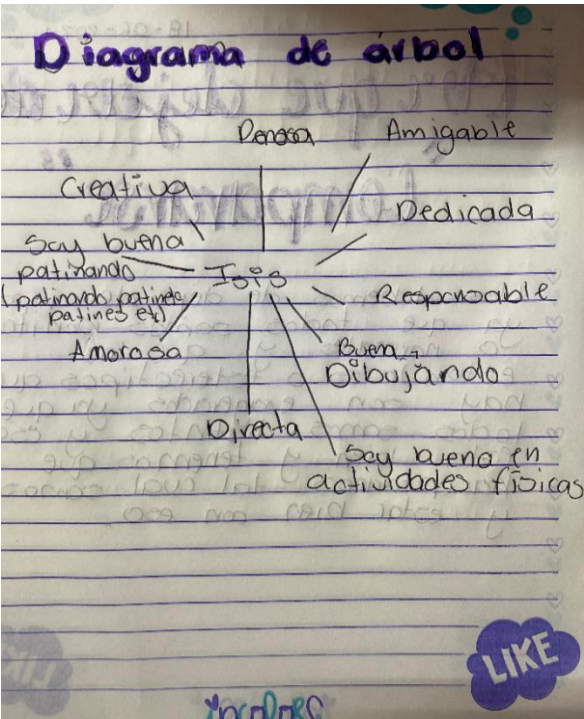 Diagrama de árbol
Amigable
Creativa
Dedicada
Soy buena
patinando
Isis
(patinando patineta
patines etc)
Responsable
Amorosa
Buena
Dibujando
Directa
Soy buena en
actividades físicas
LIKE